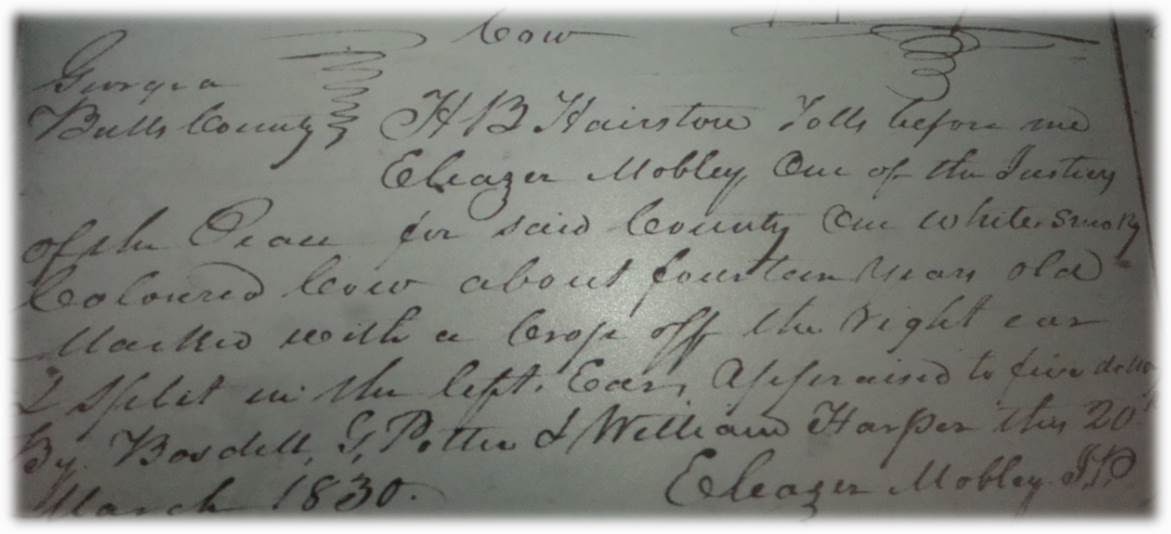 Cow
Georgia
Butts County H B Hairstow Tolls before me
Eleazer Mobley One of the Justices
of the Peace for said County One white smoky
Coloured Cow about fourteen years old
Marked with a Crop off the right ear
& split in the left Ear, Appraised to five dollars
By Bosdell, G, Potter & William Harper this 20th
March 1830.
Eleazer Mobley J.P